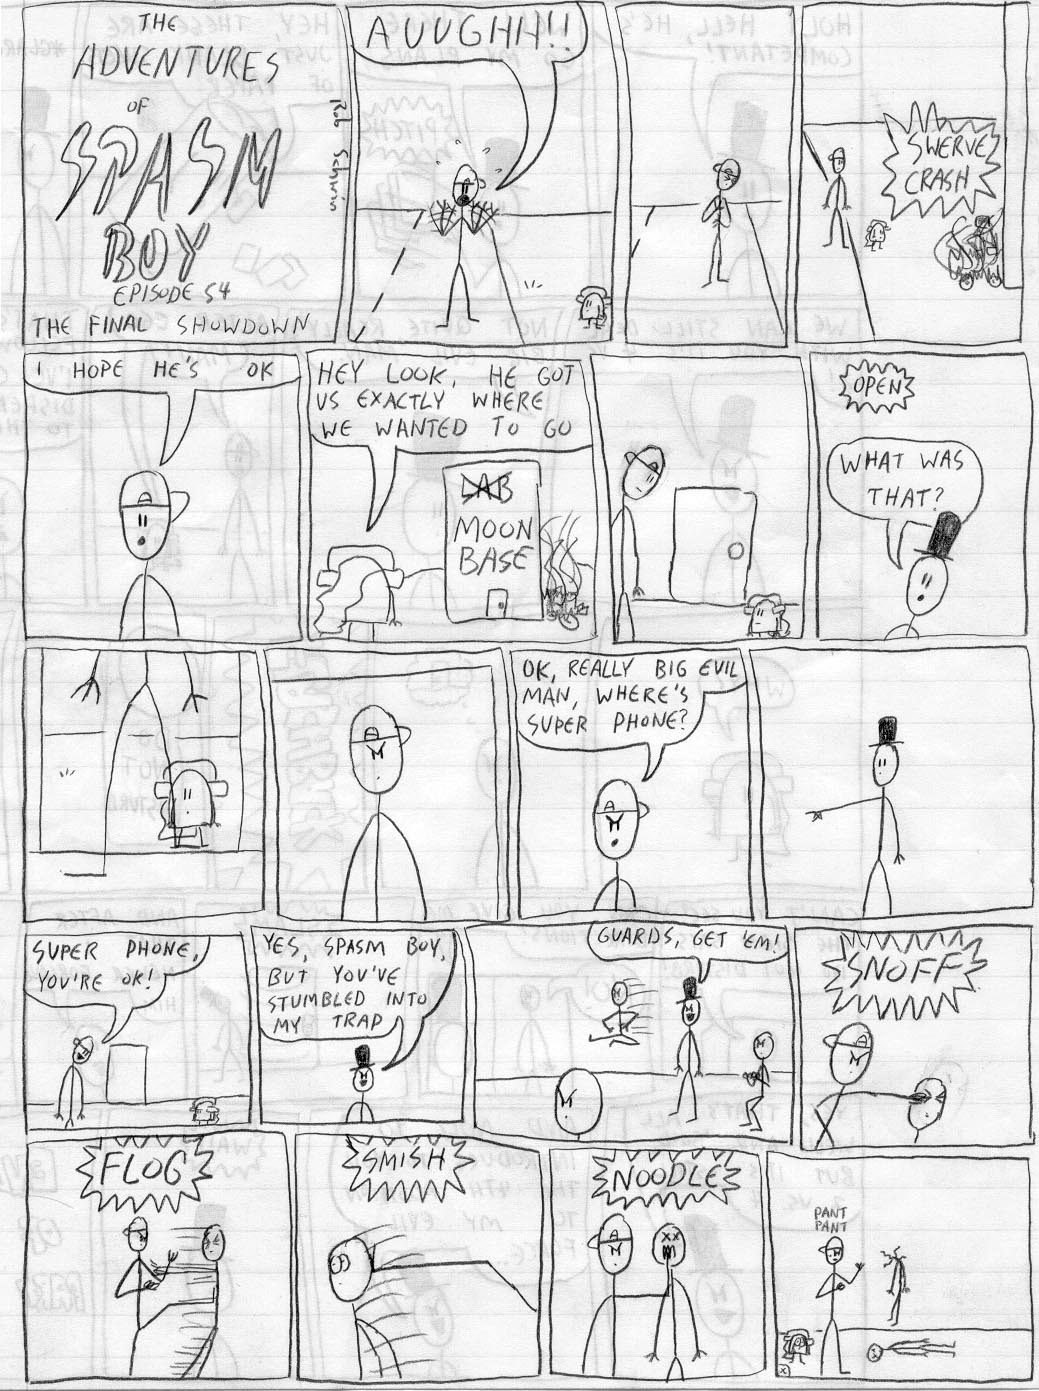 THE
ADVENTURES
OF
SPASM
BOY
EPISODE 54
THE FINAL SHOWDOWN
Rob Schmin
AUUGHH!!
SWERVE
CRASH
I HOPE HE'S OK
HEY LOOK, HE GOT
US EXACTLY WHERE
WE WANTED TO GO
LAB
MOON
BASE
OPEN
WHAT WAS
THAT?
OK, REALLY BIG EVIL
MAN, WHERE'S
SUPER PHONE?
SUPER PHONE,
YOU'RE OK!
YES, SPASM BOY,
BUT YOU'VE
STUMBLED INTO
MY TRAP
GUARDS, GET 'EM!
SNOFF
FLOG
SMISH
NOODLE
PANT
PANT